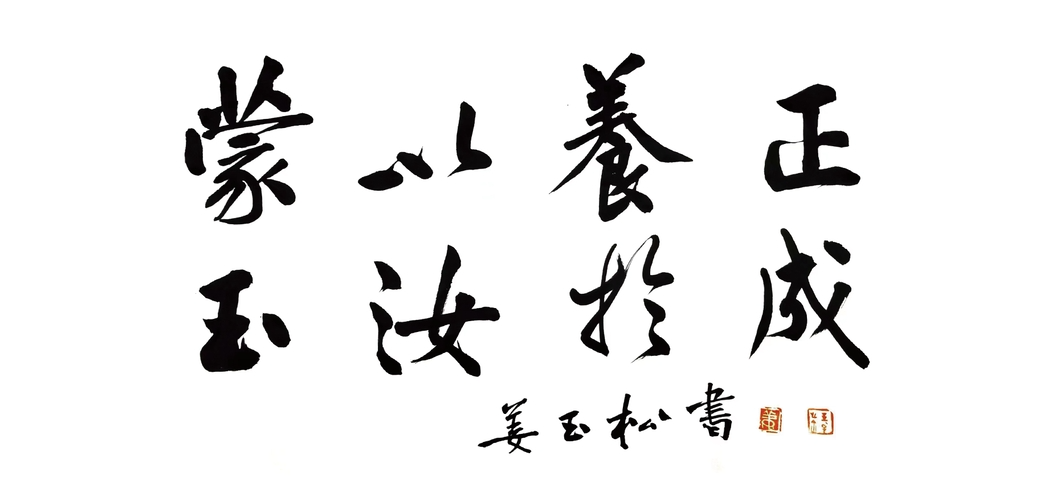 蒙以養正
玉汝於成
姜玉松書